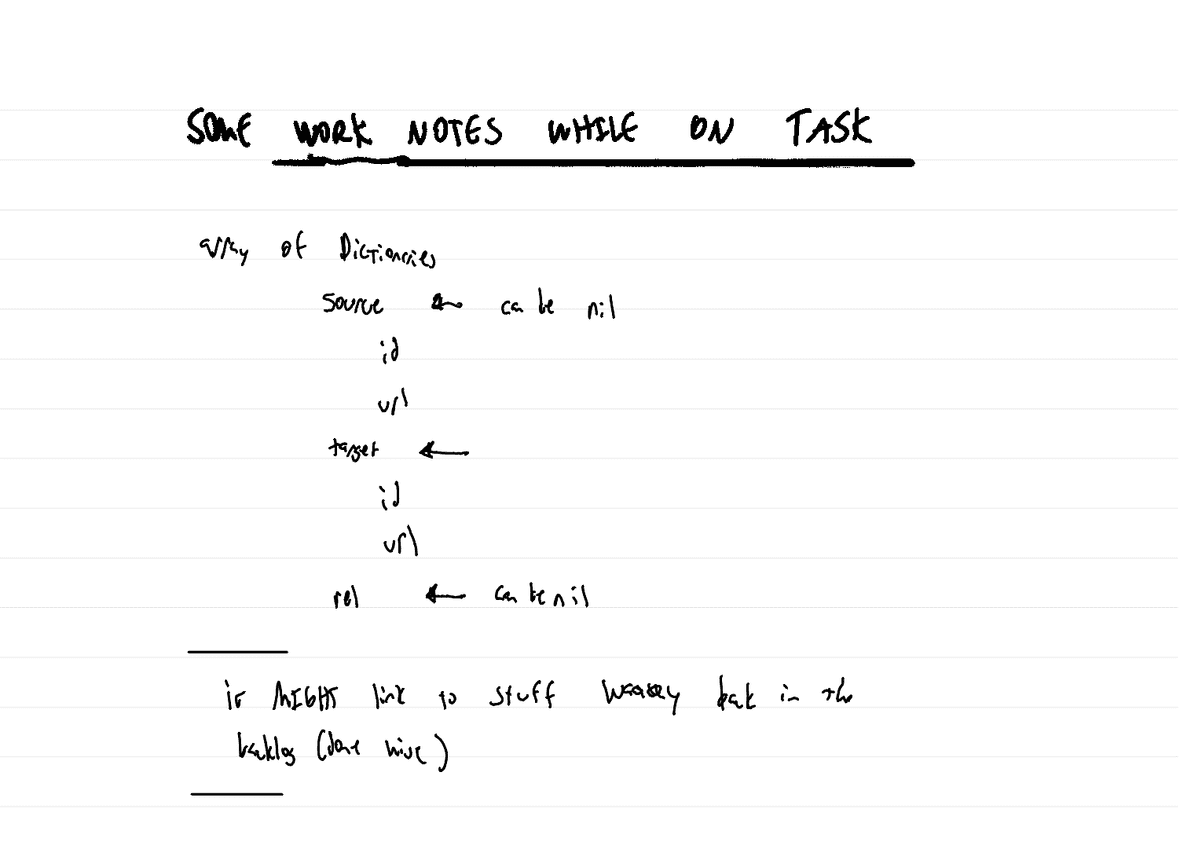 SOME WORK NOTES WHILE ON TASK
array of Dictionaries
source ← can be nil
id
url
target ←
id
url
rel ← can be nil
it MIGHT link to stuff waaaay back in the
backlog (done wise)